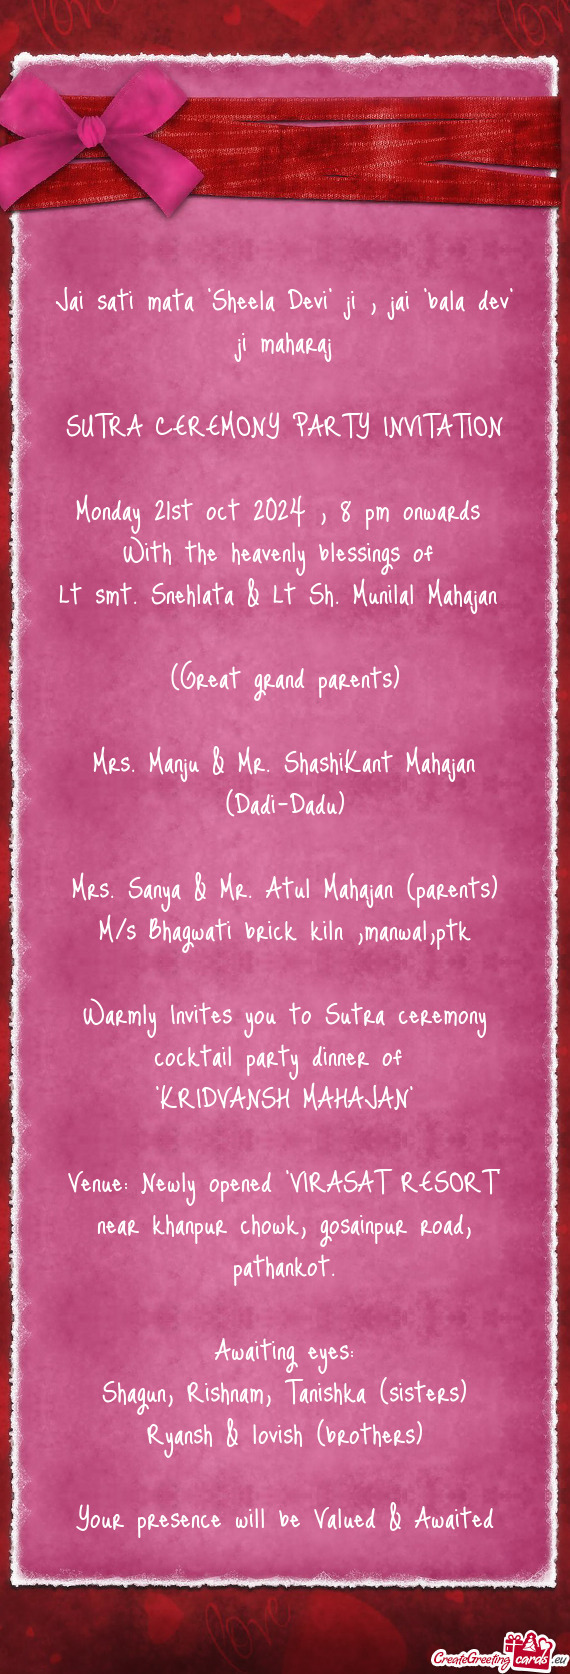 Jai sati mata "Sheela Devi" ji , jai "bala dev"
ji maharaj
SUTRA CEREMONY PARTY INVITATION
Monday 21st oct 2024 , 8 pm onwards
With the heavenly blessings of
Lt smt. Snehlata & Lt Sh. Munilal Mahajan
(Great grand parents)
Mrs. Manju & Mr. ShashiKant Mahajan
(Dadi-Dadu)
Mrs. Sanya & Mr. Atul Mahajan (parents)
M/s Bhagwati brick kiln ,manwal,ptk
Warmly Invites you to Sutra ceremony
cocktail party dinner of
"KRIDVANSH MAHAJAN"
Venue: Newly opened "VIRASAT RESORT"
near khanpur chowk, gosainpur road,
pathankot.
Awaiting eyes:
Shagun, Rishnam, Tanishka (sisters)
Ryansh & lovish (brothers)
Your presence will be Valued & Awaited
CreateGreetingcards.eu